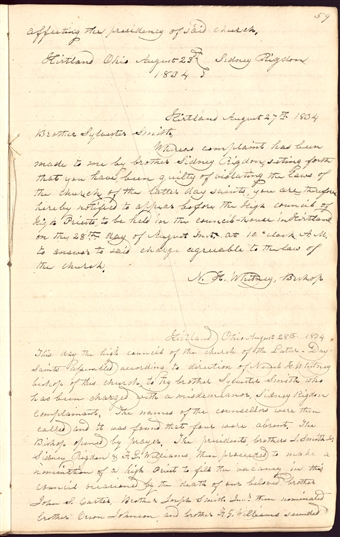 59
affecting the presidency of said church.
Kirtland Ohio August 23th Sidney Rigdon
1834
Kirtland August 27th 1834
Brother Sylvester Smith,
Whereas complaint has been
made to me by brother Sidney Rigdon, seting forth
that you have been guilty of violating the laws of
the church of the latter day saints, you are therefore
hereby notified to appear before the high council of
high Priests to be held in the council-house in Kirtland
on the 28th day of August Inst. at 10 o'clock A.M.
to answer to said charge agreeable to the law of
the church.
N. K. Whitney, Bishop
Kirtland Ohio August 28th 1834.
This day the high council of the church of the Latter-Day-
Saints assembled according to direction of Newel K Whitney
bishop of this church, to try brother Sylvester Smith who
has been charged with a misdemeanor, Sidney Rigdon
complainant. The names of the counsellors were then
called and it was found that four were absent. The
Bishop opened by prayer. The presidents, brothers J. Smith Jr
Sidney Rigdon & F.G. Williams, then proceeded to make a
nomination of a high Priest to fill the vacancy in this
council occasioned by the death of our beloved brother
John S. Carter. Brother Joseph Smith Jun. then nominated
brother Orson Johnson and brother F.G. Williams seconded